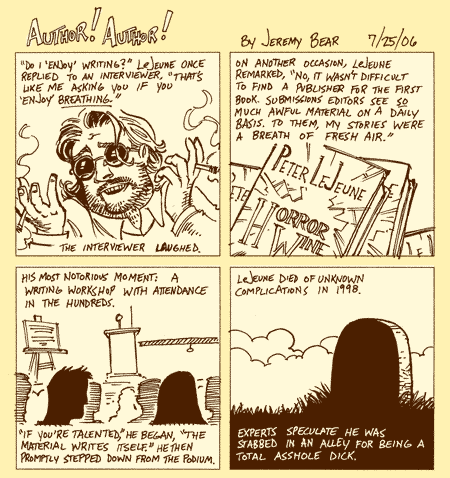 AUTHOR! AUTHOR!
BY JEREMY BEAR 7/25/06
"DO I 'ENJOY' WRITING?" LEJEUNE ONCE
REPLIED TO AN INTERVIEWER, "THAT'S
LIKE ME ASKING YOU IF YOU
'ENJOY' BREATHING."
THE INTERVIEWER LAUGHED.
ON ANOTHER OCCASION, LEJEUNE
REMARKED, "NO, IT WASN'T DIFFICULT
TO FIND A PUBLISHER FOR THE FIRST
BOOK. SUBMISSIONS EDITORS SEE SO
MUCH AWFUL MATERIAL ON A DAILY
BASIS. TO THEM, MY STORIES WERE
A BREATH OF FRESH AIR."
PETER LEJEUNE
HORROR
WINE
HIS MOST NOTORIOUS MOMENT: A
WRITING WORKSHOP WITH ATTENDANCE
IN THE HUNDREDS.
"IF YOU'RE TALENTED," HE BEGAN, "THE
MATERIAL WRITES ITSELF." HE THEN
PROMPTLY STEPPED DOWN FROM THE PODIUM.
LEJEUNE DIED OF UNKNOWN
COMPLICATIONS IN 1998.
EXPERTS SPECULATE HE WAS
STABBED IN AN ALLEY FOR BEING A
TOTAL ASSHOLE DICK.